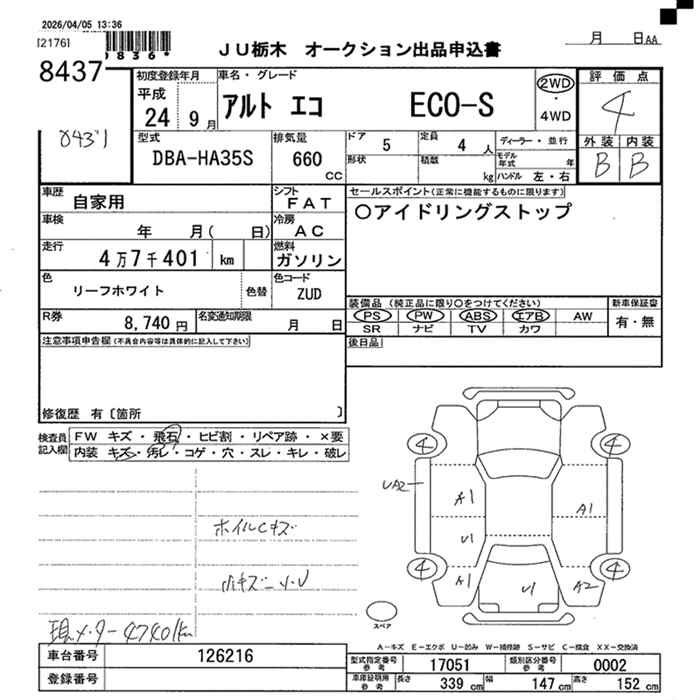 2026/04/05 13:36
[2176]
0836*
JU栃木 オークション出品申込書
月 日AA
8437
初度登録年月
平成
24 9月
車名・グレード
アルト エコ ECO-S
2WD
・
4WD
評価点
4
外装 内装
B B
型式
DBA-HA35S
排気量
660
CC
ドア 5
定員 4 人
形状
積載 kg
ディーラー・並行
モデル年式 年
ハンドル 左・右
車歴
自家用
シフト
FAT
セールスポイント(正常に機能するものに限ります)
○アイドリングストップ
車検
年 月( 日)
冷房
AC
走行
4万7千401 km
燃料
ガソリン
色
リーフホワイト
色替
色コード
ZUD
装備品 (純正品に限り○をつけてください)
新車保証書
PS PW ABS エアB AW
有・無
SR ナビ TV カワ
R券
8,740円
名変通知期限
月 日
後日品
注意事項申告欄(不具合内容等は具体的に記入して下さい)
修復歴 有〔箇所 〕
検査員記入欄
FW キズ・飛石・ヒビ割・リペア跡・×要
内装 キズ・汚レ・コゲ・穴・スレ・キレ・破レ
4 4
UA2
A1 A1
U1
4 4
A1 U1 A2
ホイルCキズ
小キズ
現メーター47401km
スペア
A-キズ E-エクボ U-凹み W-補修跡 S-サビ C-腐食 XX-交換済
車台番号 126216
登録番号
型式指定番号 参考 17051
類別区分番号 参考 0002
車庫証明用 参考 長さ 339 cm 幅 147 cm 高さ 152 cm